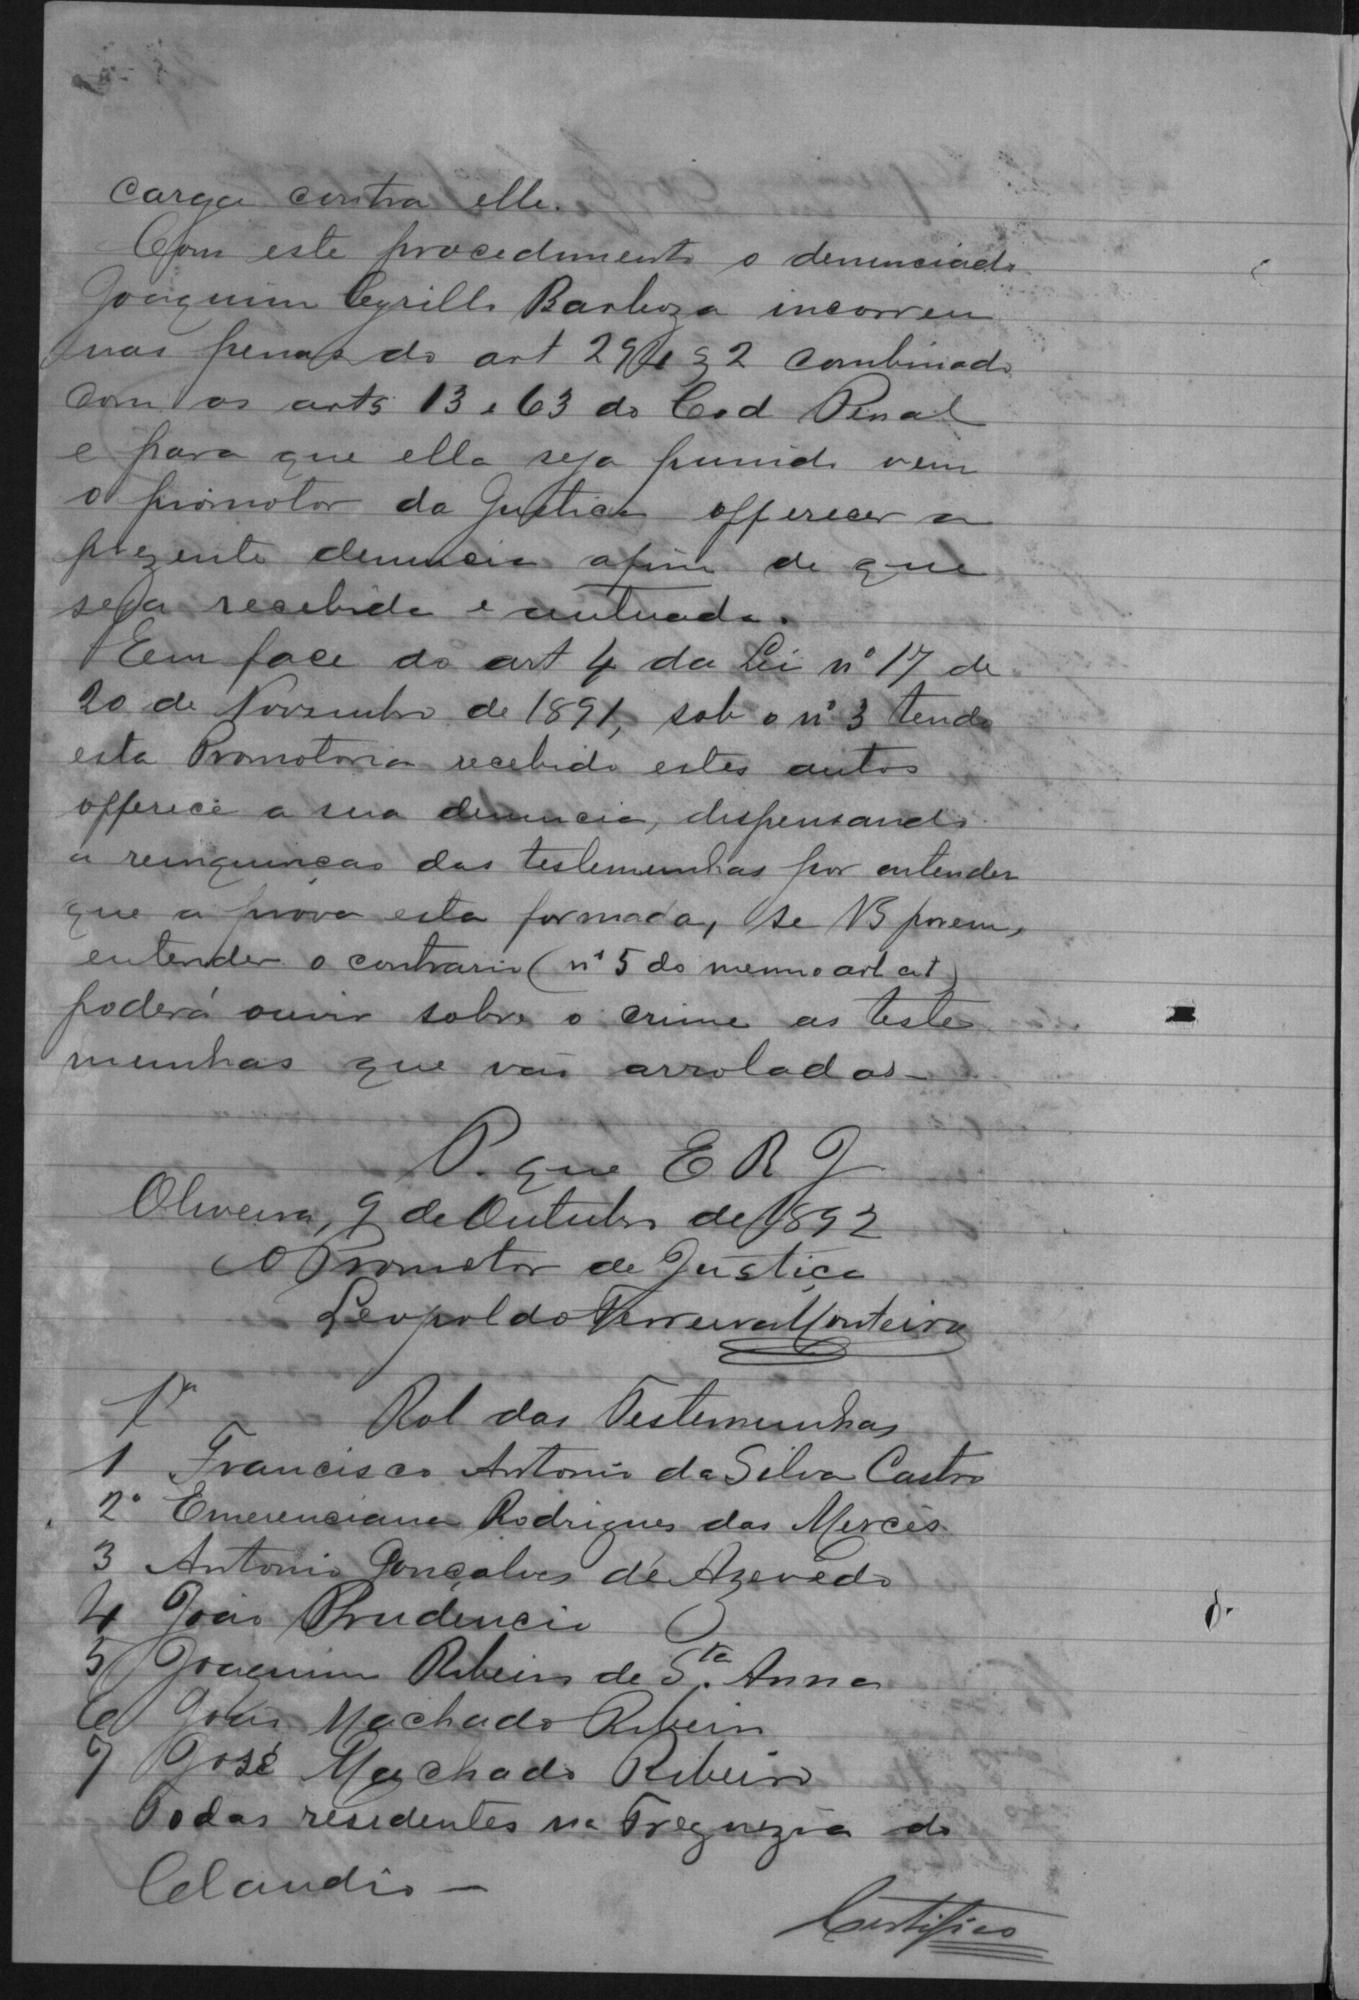 carga contra elle.
Com este procedimento o denunciado
Joaquim Cyrillo Barboza incorreu
nas penas do art 294 § 2 combinado
com os arts 13 e 63 do Cod Penal
e para que elle seja punido vem
o promotor da Justiça offerecer a
prezente denuncia afim de que
seja recebida e autuada.
Em face do art 4 da Lei nº 17 de
20 de Novembro de 1891, sob o nº 3 tendo
esta Promotoria recebido estes autos
offerece a sua denuncia, dispensando
a reinquirição das testemunhas por entender
que a prova esta formada, se VS porem,
entender o contrario (nº 5 do mesmo art cit)
poderá ouvir sobre o crime as teste
munhas que vão arroladas—
P. que E R J
Oliveira, 9 de Outubro de 1892
O Promotor de Justiça
Leopoldo Ferreira Monteiro
Rol das Testemunhas
1 Francisco Antonio da Silva Castro
2º Emerenciana Rodrigues das Mercês
3 Antonio Gonçalves de Azevêdo
4 João Prudencio
5 Joaquim Ribeiro de Sta. Anna
6 João Machado Ribeiro
7 José Machado Ribeiro
Todas residentes na Freguezia do
Claudio—
Certifico